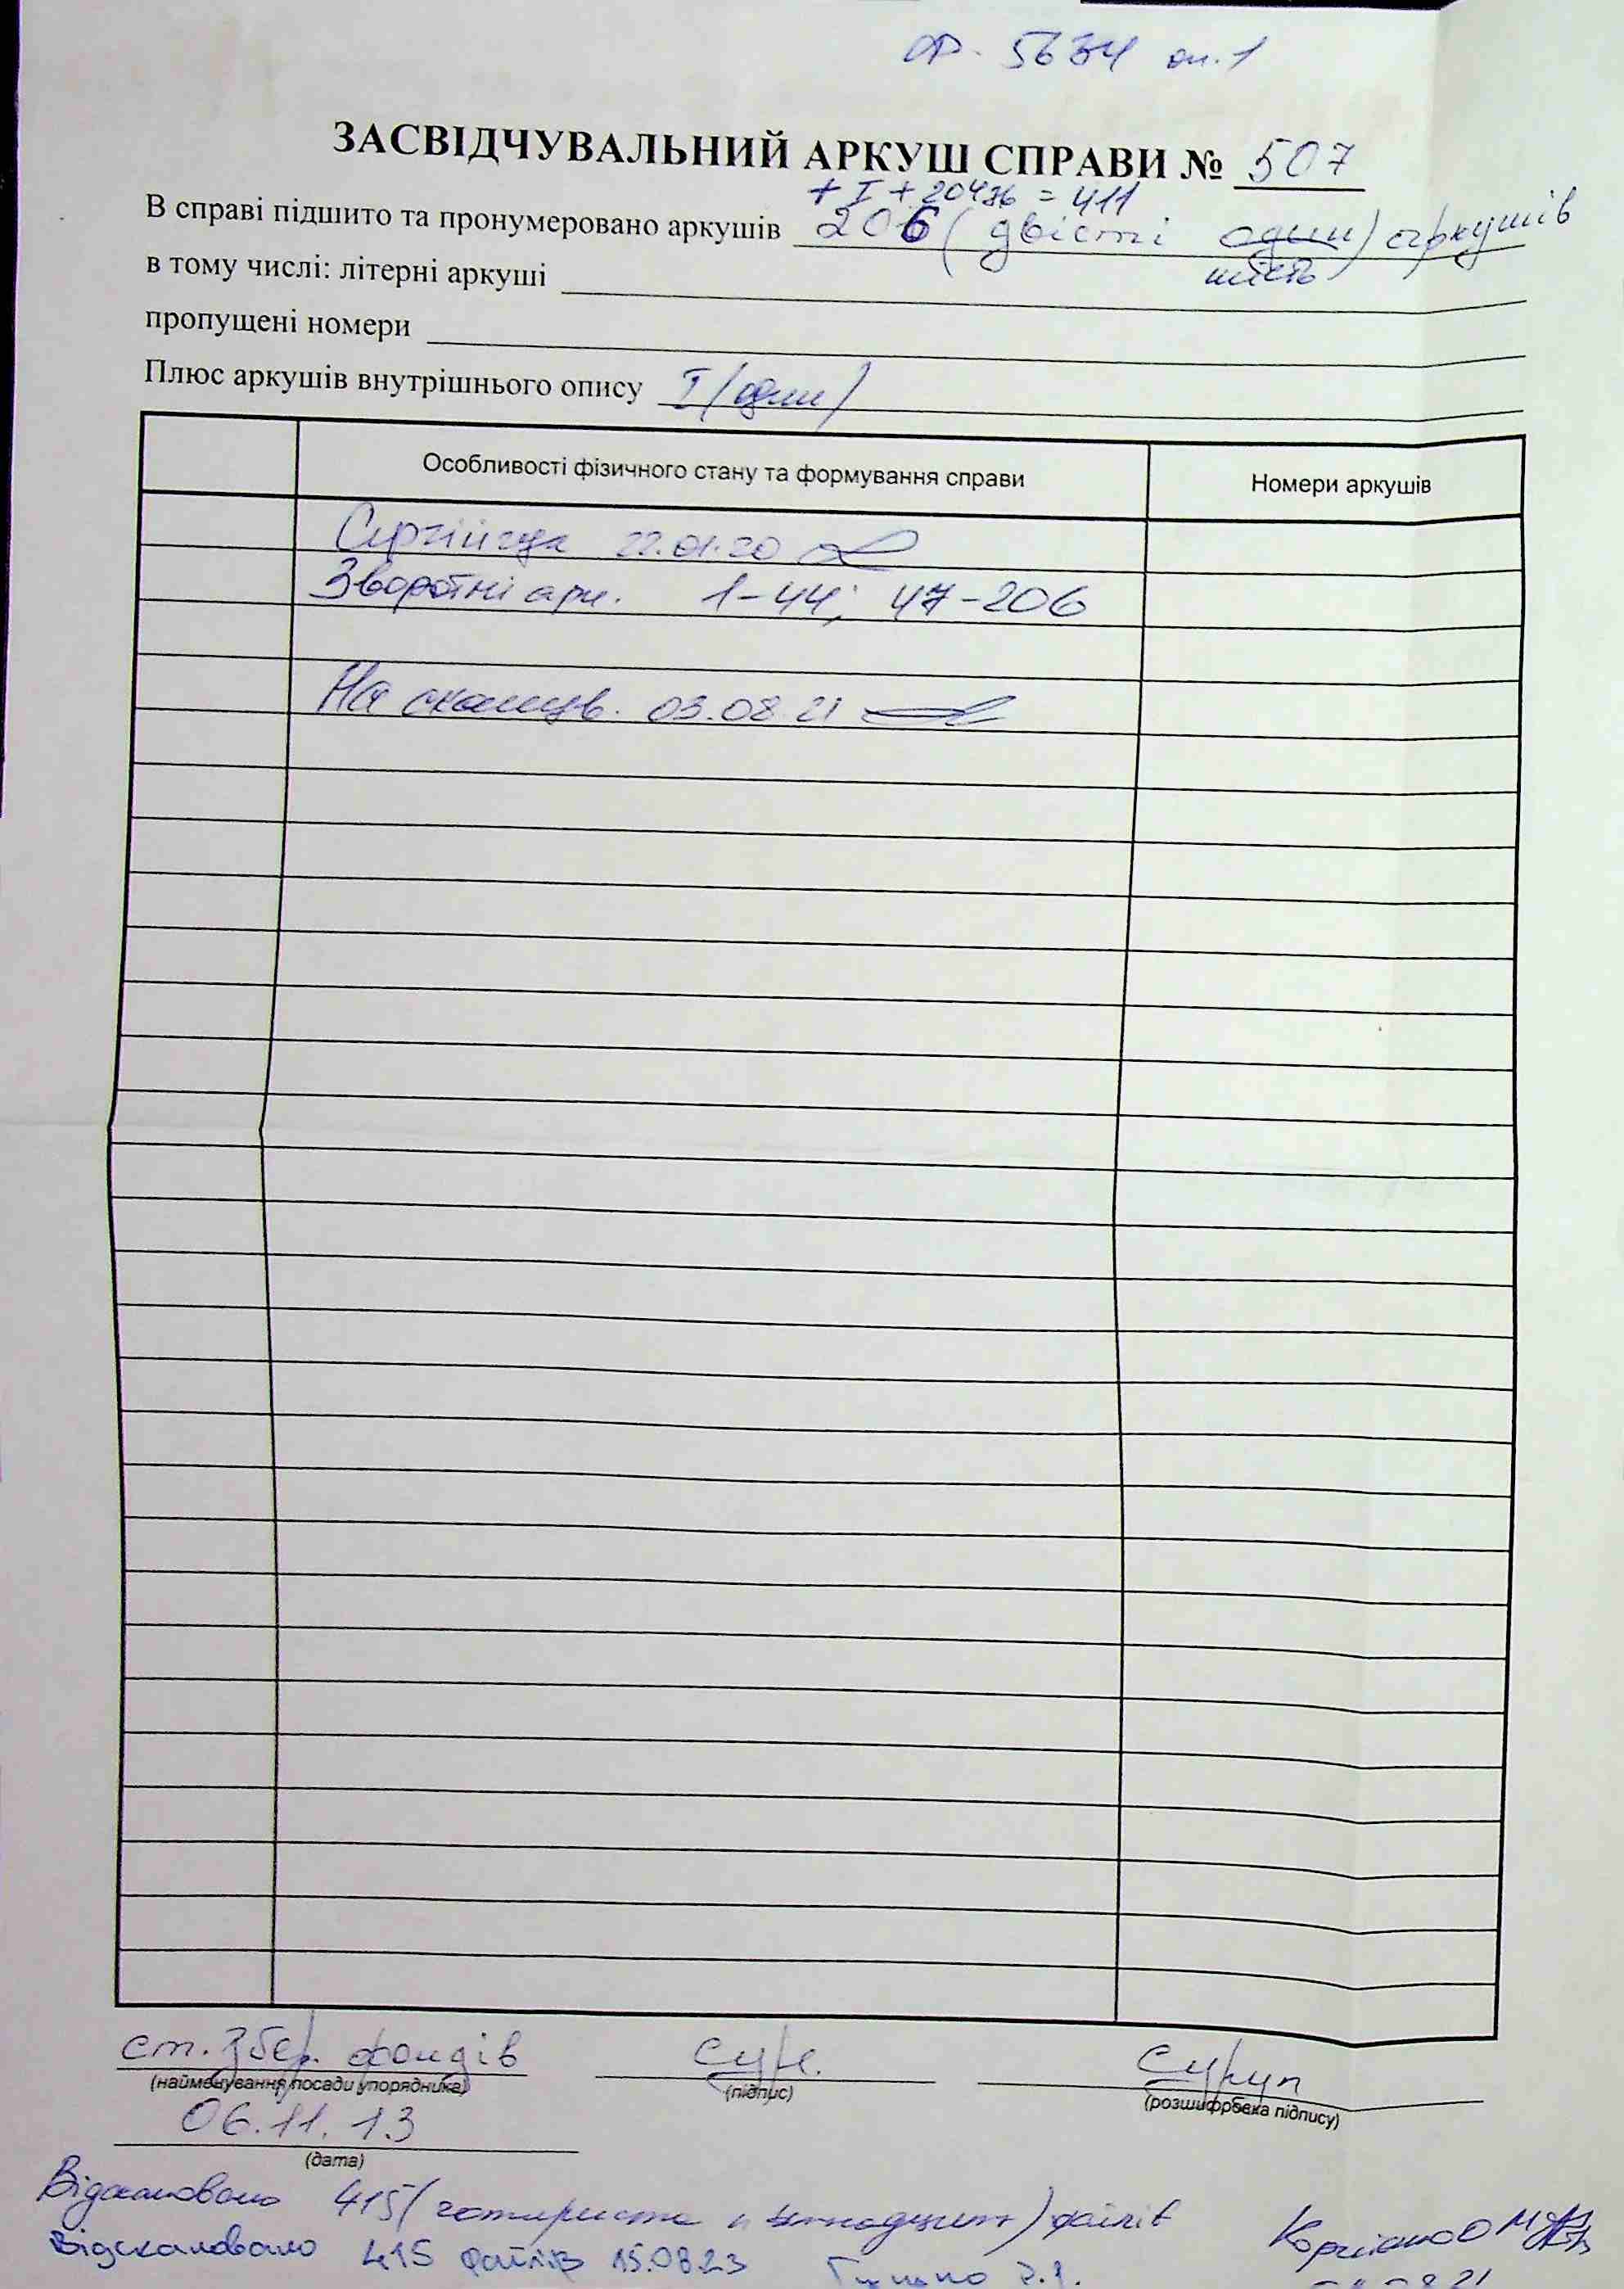 ф. 5634 оп. 1
ЗАСВІДЧУВАЛЬНИЙ АРКУШ СПРАВИ № 507
+ I + 204зв = 411
В справі підшито та пронумеровано аркушів 206 (двісті один) аркушів
шість
в тому числі: літерні аркуші
пропущені номери
Плюс аркушів внутрішнього опису I (один)
Особливості фізичного стану та формування справи Номери аркушів
22.01.20
Зворотні арк. 1-44; 47-206
На сканув. 03.08.21
ст. збер. фондів
(найменування посади упорядника) (підпис) (розшифровка підпису)
06.11.13
(дата)
Відскановано 415 (чотириста п'ятнадцять) файлів
Відскановано 415 файлів 15.08.23